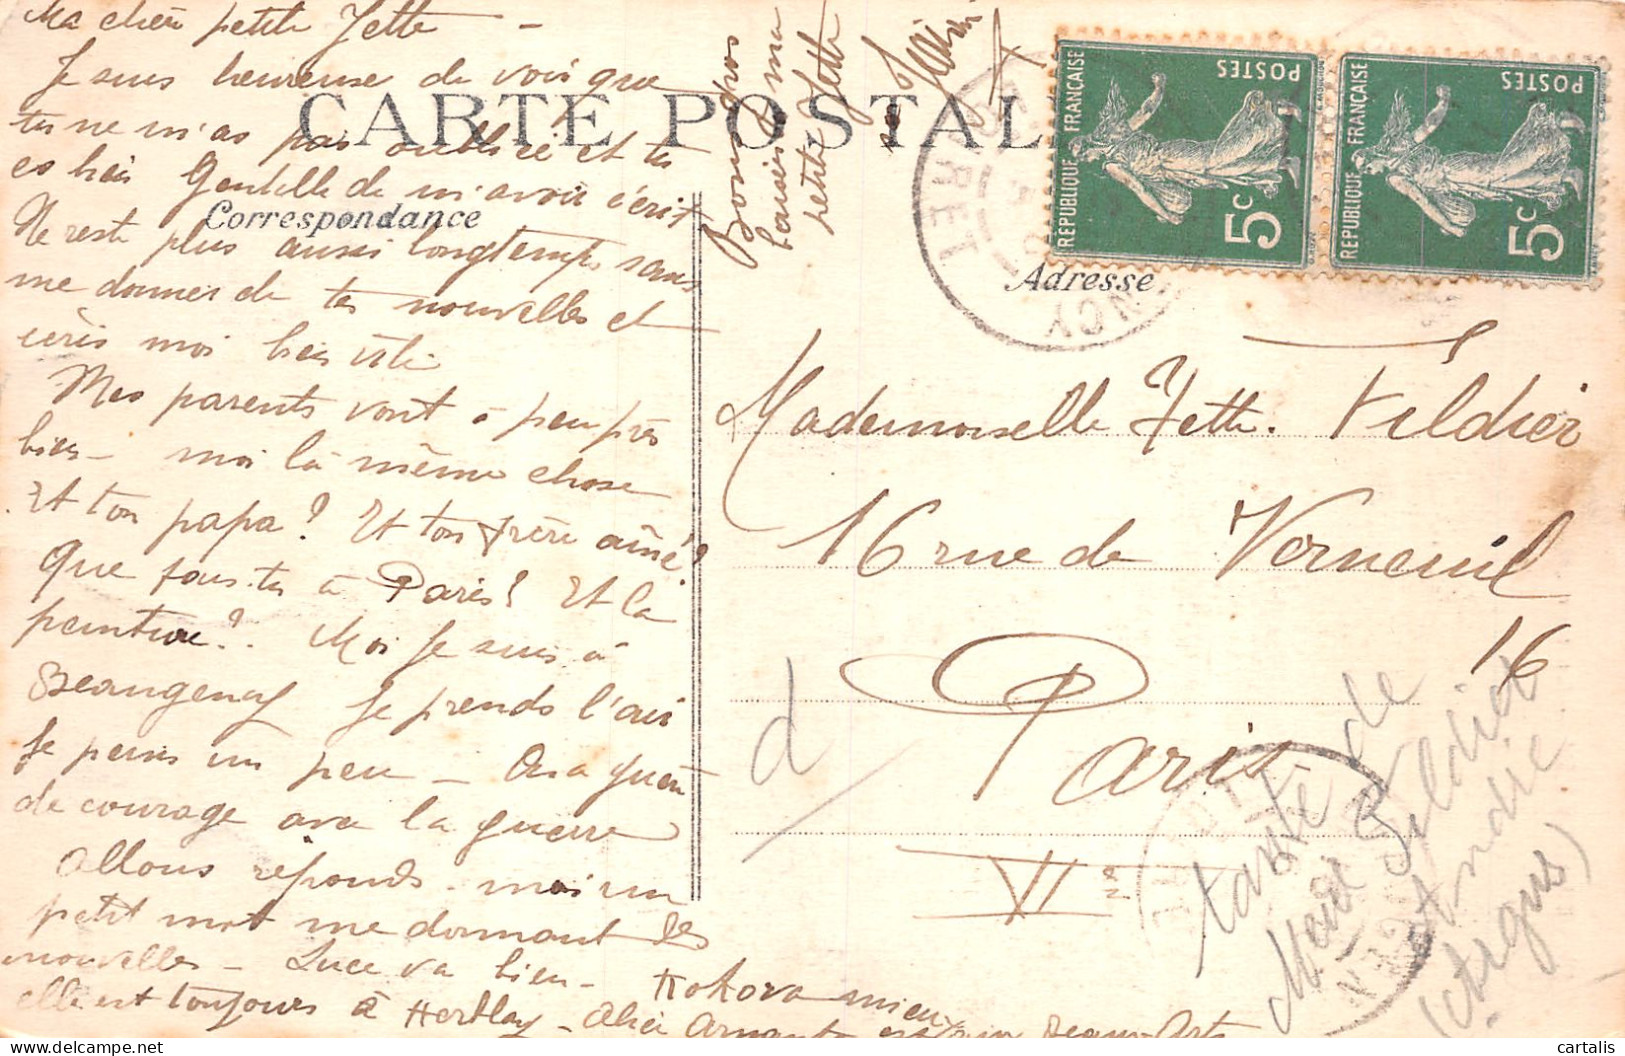 Ma chère petite Jette –
Je suis heureuse de voir que
tu ne m'as pas oubliée et tu
es bien Gentille de m'avoir écrit
Ne reste plus aussi longtemps sans
me donner de tes nouvelles et
écris moi bien vite
Mes parents vont à peu près
bien – moi la même chose
Et ton papa? Et ton frère aîné?
Que fais-tu à Paris? Et la
peinture?. Moi je suis à
Beaugency je prends l'air
je peins un peu –
de courage avec la guerre
Allons réponds-moi un
petit mot me donnant des
nouvelles – Luce va bien –
elle est toujours à Herblay – Alice est aux Beaux-Arts
mieux
Bons gros
baisers à ma
petite Jette
CARTE POSTALE
Correspondance
Adresse
RÉPUBLIQUE FRANÇAISE
POSTES
5c
RÉPUBLIQUE FRANÇAISE
POSTES
5c
LOIRET
Mademoiselle Jette. Fildier
16 rue de Verneuil
16
Paris
VI
d
tante de
Fildier
André
(Argus)
cartalis